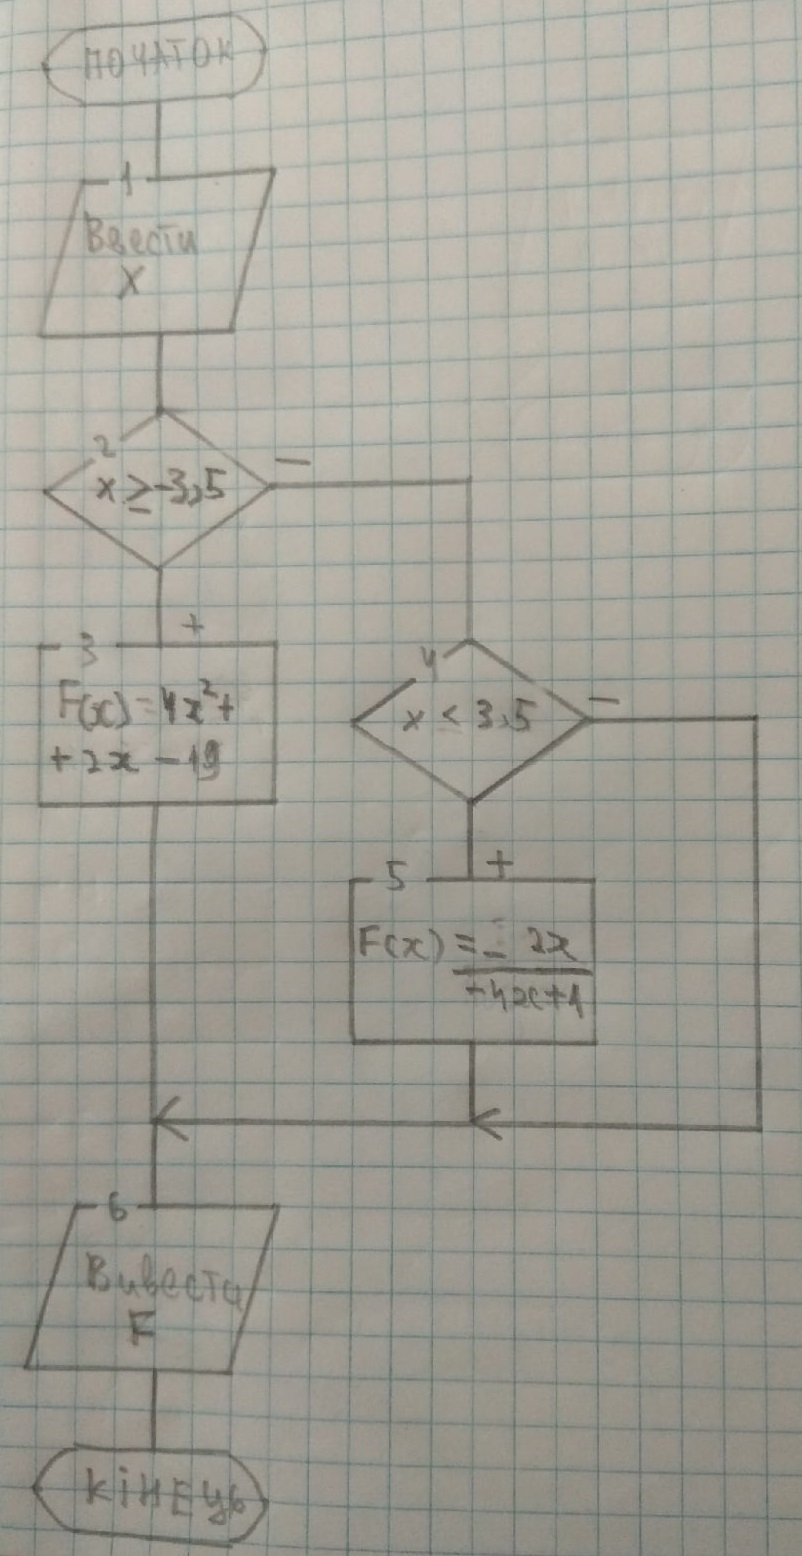 ПОЧАТОК
1
Ввести
X
2
x ≥ -3,5
−
+
3
F(x) = 4x² +
+ 2x - 19
4
x < 3,5
−
+
5
F(x) = - 2x
-4x+1
6
Вивести
F
КІНЕЦЬ